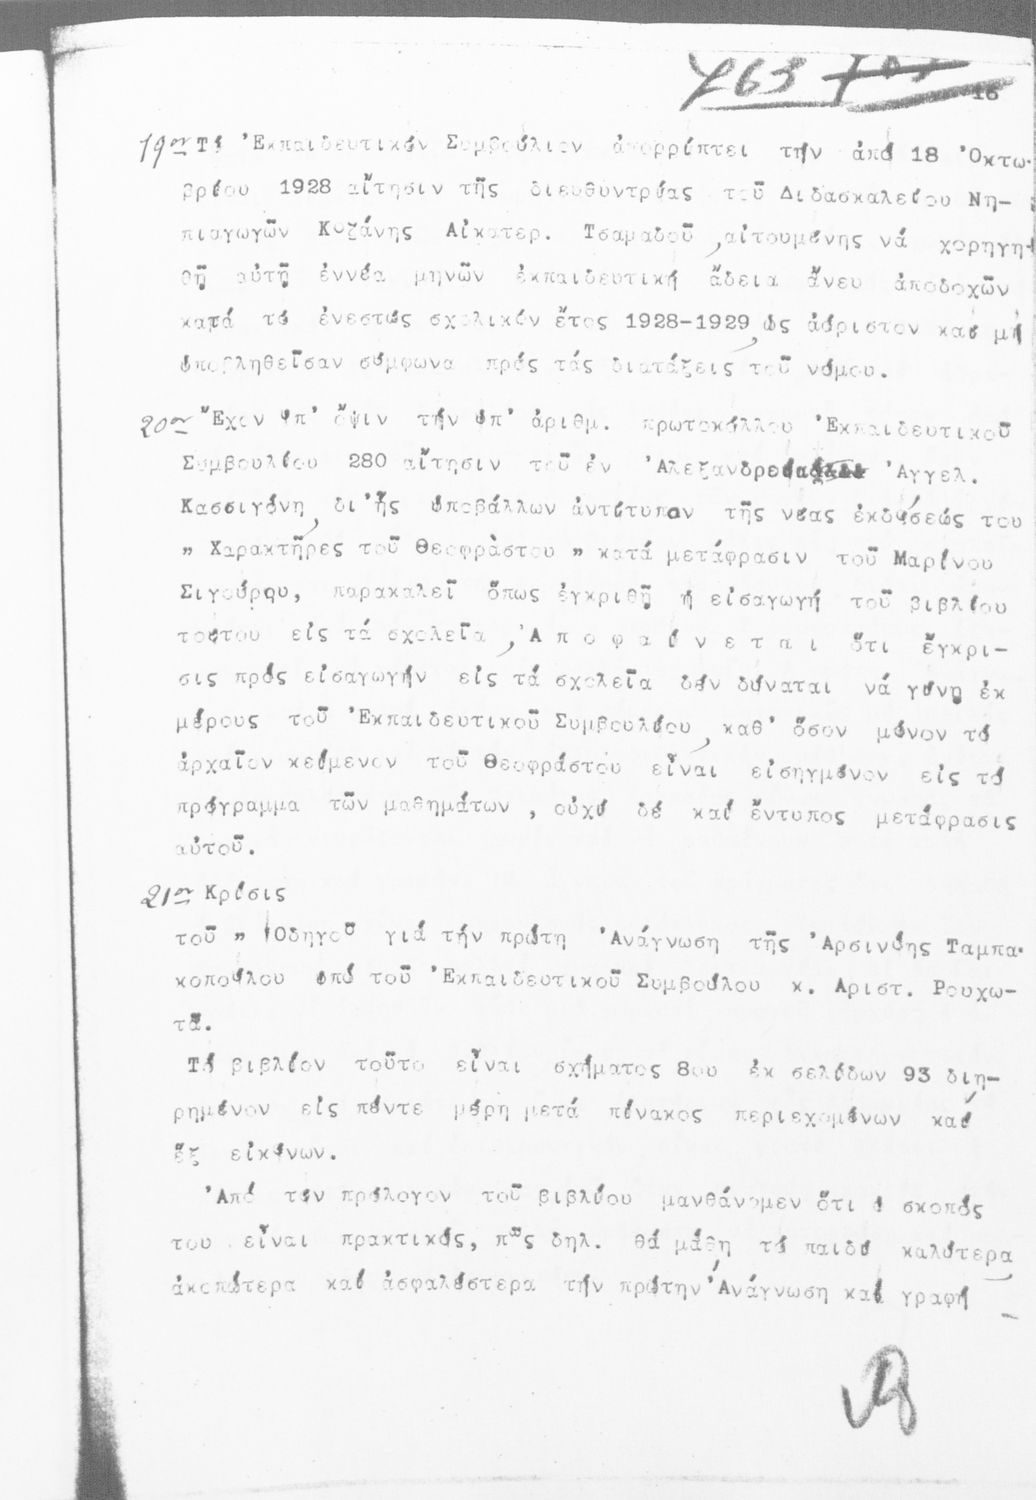 263
16
19ον Τό Ἐκπαιδευτικόν Συμβούλιον ἀπορρίπτει τήν ἀπό 18 Ὀκτω-
βρίου 1928 αἴτησιν τῆς διευθυντρίας τοῦ Διδασκαλείου Νη-
πιαγωγῶν Κοζάνης Αἰκατερ. Τσαμαδοῦ, αἰτουμένης νά χορηγη-
θῇ αὐτῇ ἐννέα μηνῶν ἐκπαιδευτική ἄδεια ἄνευ ἀποδοχῶν
κατά τό ἐνεστώς σχολικόν ἔτος 1928-1929 ὡς ἀόριστον καί μή
ὑποβληθεῖσαν σύμφωνα πρός τάς διατάξεις τοῦ νόμου.
20ον Ἔχον ὑπ' ὄψιν τήν ὑπ' ἀριθμ. πρωτοκόλλου Ἐκπαιδευτικοῦ
Συμβουλίου 280 αἴτησιν τοῦ ἐν Ἀλεξανδρείᾳ Ἀγγελ.
Κασσιγόνη, δι'ἧς ὑποβάλλων ἀντίτυπον τῆς νέας ἐκδόσεώς του
" Χαρακτῆρες τοῦ Θεοφράστου " κατά μετάφρασιν τοῦ Μαρίνου
Σιγούρου, παρακαλεῖ ὅπως ἐγκριθῇ ἡ εἰσαγωγή τοῦ βιβλίου
τούτου εἰς τά σχολεῖα, Ἀ π ο φ α ί ν ε τ α ι ὅτι ἔγκρι-
σις πρός εἰσαγωγήν εἰς τά σχολεῖα δέν δύναται νά γίνῃ ἐκ
μέρους τοῦ Ἐκπαιδευτικοῦ Συμβουλίου, καθ' ὅσον μόνον τό
ἀρχαῖον κείμενον τοῦ Θεοφράστου εἶναι εἰσηγμένον εἰς τό
πρόγραμμα τῶν μαθημάτων , οὐχί δέ καί ἔντυπος μετάφρασις
αὐτοῦ.
21ον Κρίσις
τοῦ " Ὁδηγοῦ γιά τήν πρώτη Ἀνάγνωση τῆς Ἀρσινόης Ταμπα-
κοπούλου ὑπό τοῦ Ἐκπαιδευτικοῦ Συμβούλου κ. Αριστ. Ρουχω-
τᾶ.
Τό βιβλίον τοῦτο εἶναι σχήματος 8ου ἐκ σελίδων 93 διῃ-
ρημένον εἰς πέντε μέρη μετά πίνακος περιεχομένων καί
ἕξ εἰκόνων.
Ἀπό τόν πρόλογον τοῦ βιβλίου μανθάνομεν ὅτι ὁ σκοπός
του εἶναι πρακτικός, πῶς δηλ. θά μάθῃ τό παιδί καλύτερα
ἀκοπώτερα καί ἀσφαλέστερα τήν πρώτην Ἀνάγνωση καί γραφή